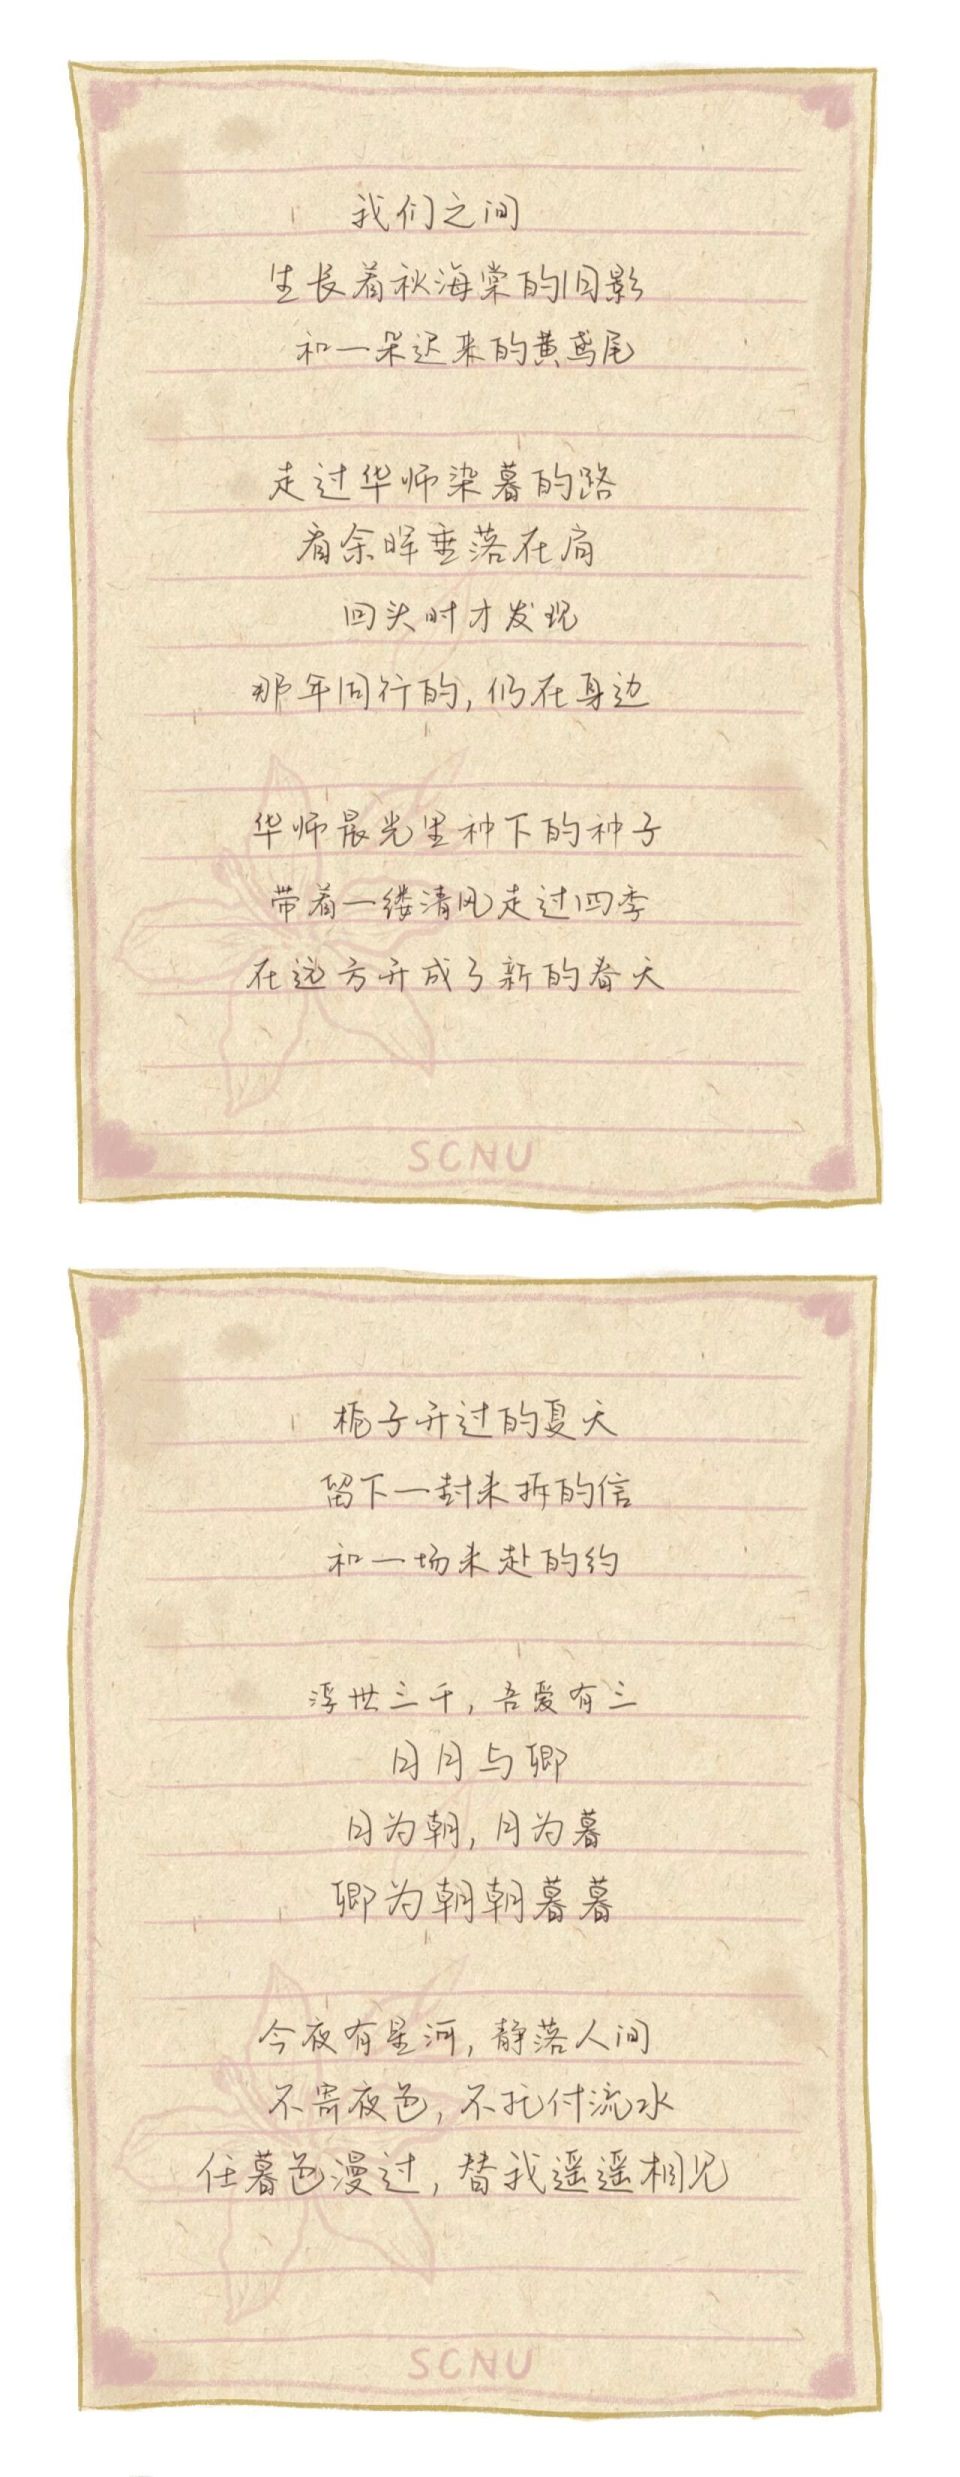 我们之间
生长着秋海棠的旧影
和一朵迟来的黄鸢尾
走过华师染暮的路
看余晖垂落在肩
回头时才发现
那年同行的，仍在身边
华师晨光里种下的种子
带着一缕清风走过四季
在远方开成了新的春天
SCNU
栀子开过的夏天
留下一封未拆的信
和一场未赴的约
浮世三千，吾爱有三
日月与卿
日为朝，月为暮
卿为朝朝暮暮
今夜有星河，静落人间
不寄夜色，不托付流水
任暮色漫过，替我遥遥相见
SCNU